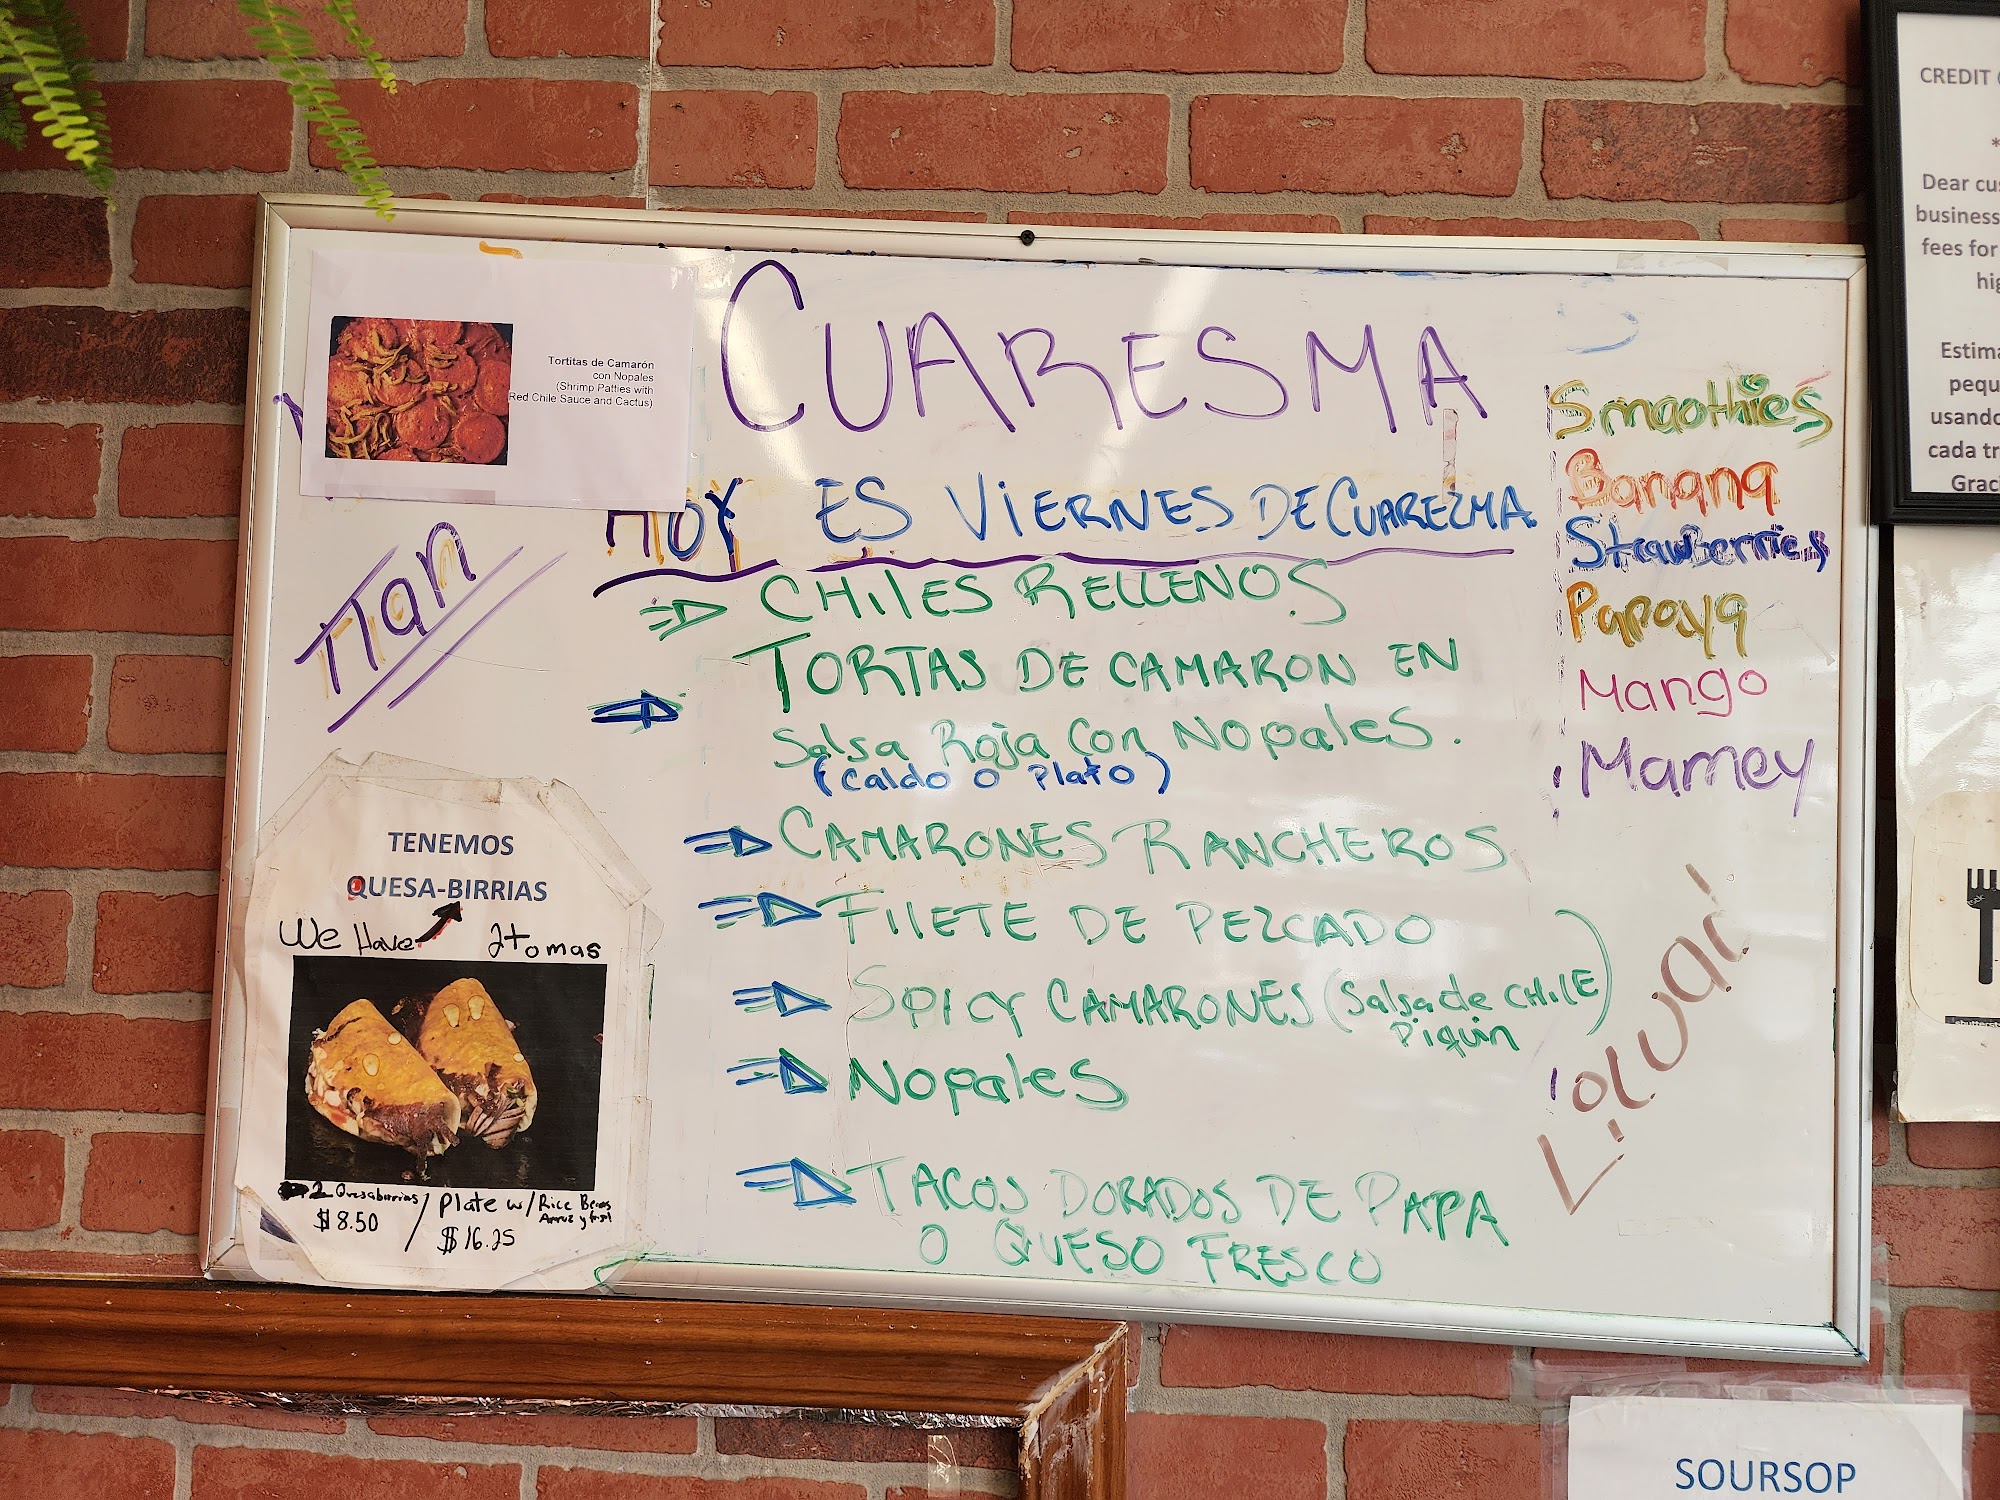 Tortitas de Camarón
con Nopales
(Shrimp Patties with
Red Chile Sauce and Cactus)
CUARESMA
HOY ES VIERNES DE CUAREZMA
TTan
CHILES RELLENOS
TORTAS DE CAMARON EN
Salsa Roja Con Nopales.
(Caldo o Plato)
CAMARONES RANCHEROS
FILETE DE PEZCADO
SPICY CAMARONES (Salsa de CHILE
Piquin)
Nopales
TACOS DORADOS DE PAPA
O QUESO FRESCO
Smoothies
Banana
StrawBerries
Papaya
Mango
Mamey
TENEMOS
QUESA-BIRRIAS
We Have
2 Quesabirrias / Plate w/ Rice Beans
Arroz y frijol
$8.50
$16.25
CREDIT
*
Dear
business
fees for
Gracias
SOURSOP